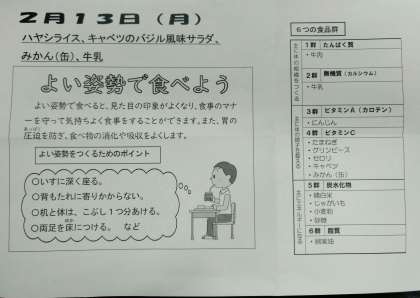 2月13日(月)
ハヤシライス、キャベツのバジル風味サラダ、
みかん(缶)、牛乳
よい姿勢で食べよう
よい姿勢で食べると、見た目の印象がよくなり、食事のマナ
ーを守って気持ちよく食事をすることができます。また、胃の
圧迫を防ぎ、食べ物の消化や吸収をよくします。
よい姿勢をつくるためのポイント
○いすに深く座る。
○背もたれに寄りかからない。
○机と体は、こぶし1つ分あける。
○両足を床につける。 など
6つの食品群
主に体の組織をつくる
1群 たんぱく質
・牛肉
2群 無機質(カルシウム)
・牛乳
主に体の調子を整える
3群 ビタミンA(カロテン)
・にんじん
4群 ビタミンC
・たまねぎ
・グリンピース
・セロリ
・キャベツ
・みかん(缶)
主にエネルギーになる
5群 炭水化物
・精白米
・じゃがいも
・小麦粉
・砂糖
6群 脂質